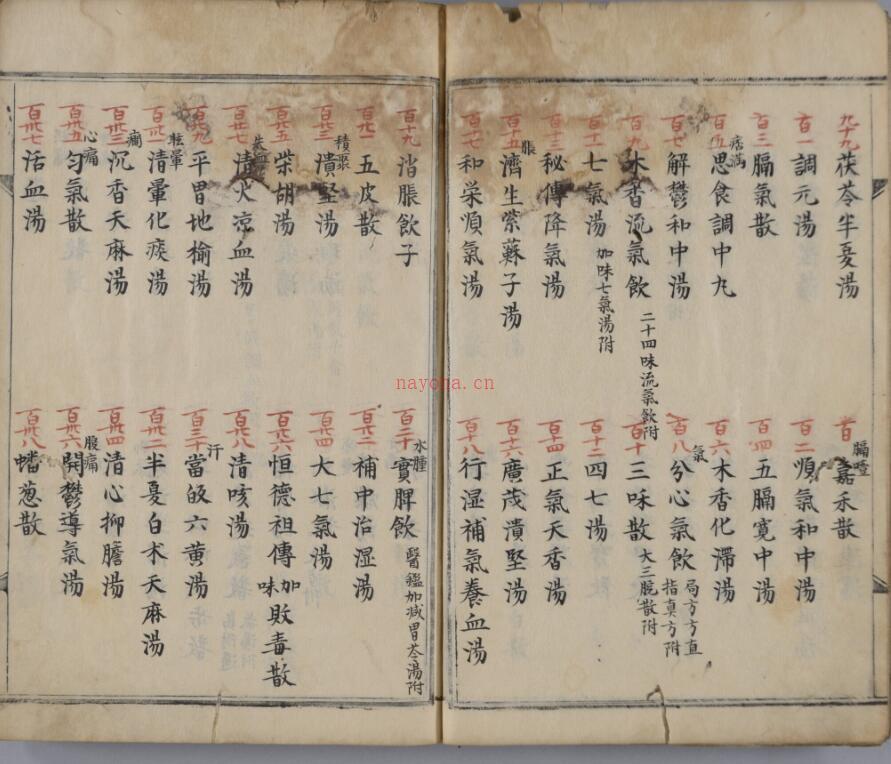 九十九 茯苓半夏湯
膈噎
百 嘉禾散
百一 調元湯
百二 順氣和中湯
百三 膈氣散
百四 五膈寛中湯
痞滿
百五 思食調中丸
百六 木香化滯湯
百七 解鬱和中湯
氣
百八 分心氣飲 局方方直
指真方附
百九 木香流氣飲 二十四味流氣飲附
百十 三味散 大三脘散附
百十一 七氣湯 加味七氣湯附
百十二 四七湯
百十三 秘傳降氣湯
百十四 正氣天香湯
脹
百十五 濟生紫蘓子湯
百十六 廣茂潰堅湯
百十七 和栄順氣湯
百十八 行湿補氣養血湯
百十九 消脹飲子
水腫
百二十 實脾飲 醫鑑加减胃苓湯附
百廿一 五皮散
百廿二 補中治湿湯
積聚
百廿三 潰堅湯
百廿四 大七氣湯
百廿五 柴胡湯
百廿六 恒德祖傳加味敗毒散
百廿七 清火凉血湯
百廿八 清咳湯
百廿九 平胃地榆湯
汗
百三十 當皈六黄湯
眩暈
百卅一 清暈化痰湯
百卅二 半夏白术天麻湯
癎
百卅三 沉香天麻湯
百卅四 清心抑膽湯
心痛
百卅五 勻氣散
腹痛
百卅六 開鬱導氣湯
百卅七 活血湯
百卅八 蟠葱散
nayona.cn